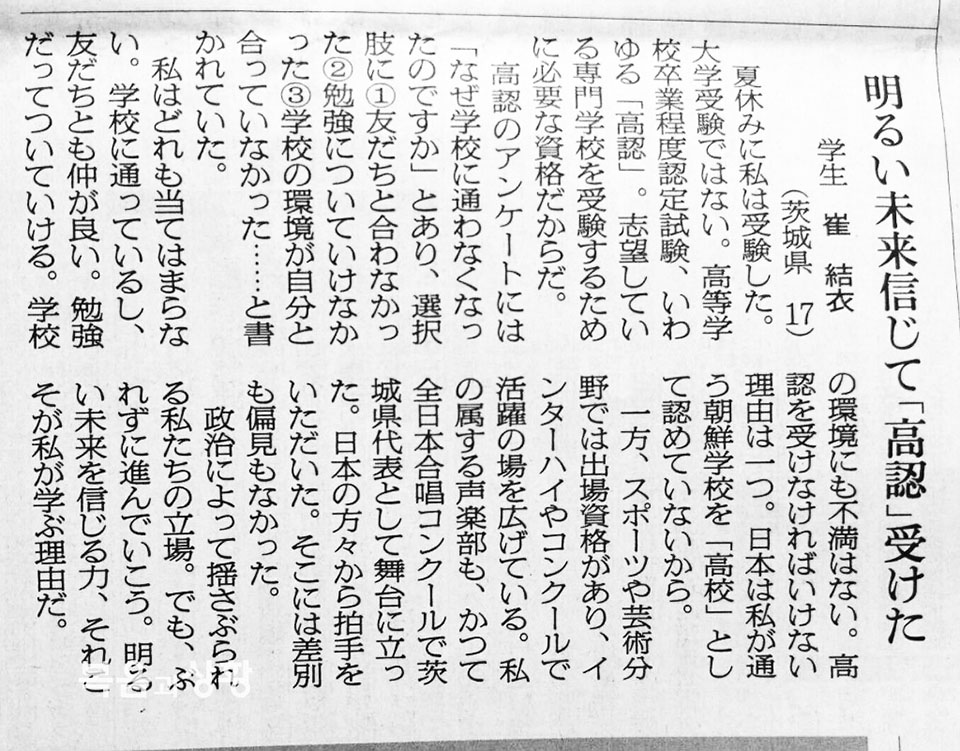 明るい未来信じて「高認」受けた
学生　崔　結衣
（茨城県　17）
夏休みに私は受験した。
大学受験ではない。高等学
校卒業程度認定試験、いわ
ゆる「高認」。志望してい
る専門学校を受験するため
に必要な資格だからだ。
高認のアンケートには
「なぜ学校に通わなくなっ
たのですか」とあり、選択
肢に①友だちと合わなかっ
た②勉強についていけなか
った③学校の環境が自分と
合っていなかった……と書
かれていた。
私はどれも当てはまらな
い。学校に通っているし、
友だちとも仲が良い。勉強
だってついていける。学校
の環境にも不満はない。高
認を受けなければいけない
理由は一つ。日本は私が通
う朝鮮学校を「高校」とし
て認めていないから。
一方、スポーツや芸術分
野では出場資格があり、イ
ンターハイやコンクールで
活躍の場を広げている。私
の属する声楽部も、かつて
全日本合唱コンクールで茨
城県代表として舞台に立っ
た。日本の方々から拍手を
いただいた。そこには差別
も偏見もなかった。
政治によって揺さぶられ
る私たちの立場。でも、ぶ
れずに進んでいこう。明る
い未来を信じる力、それこ
そが私が学ぶ理由だ。